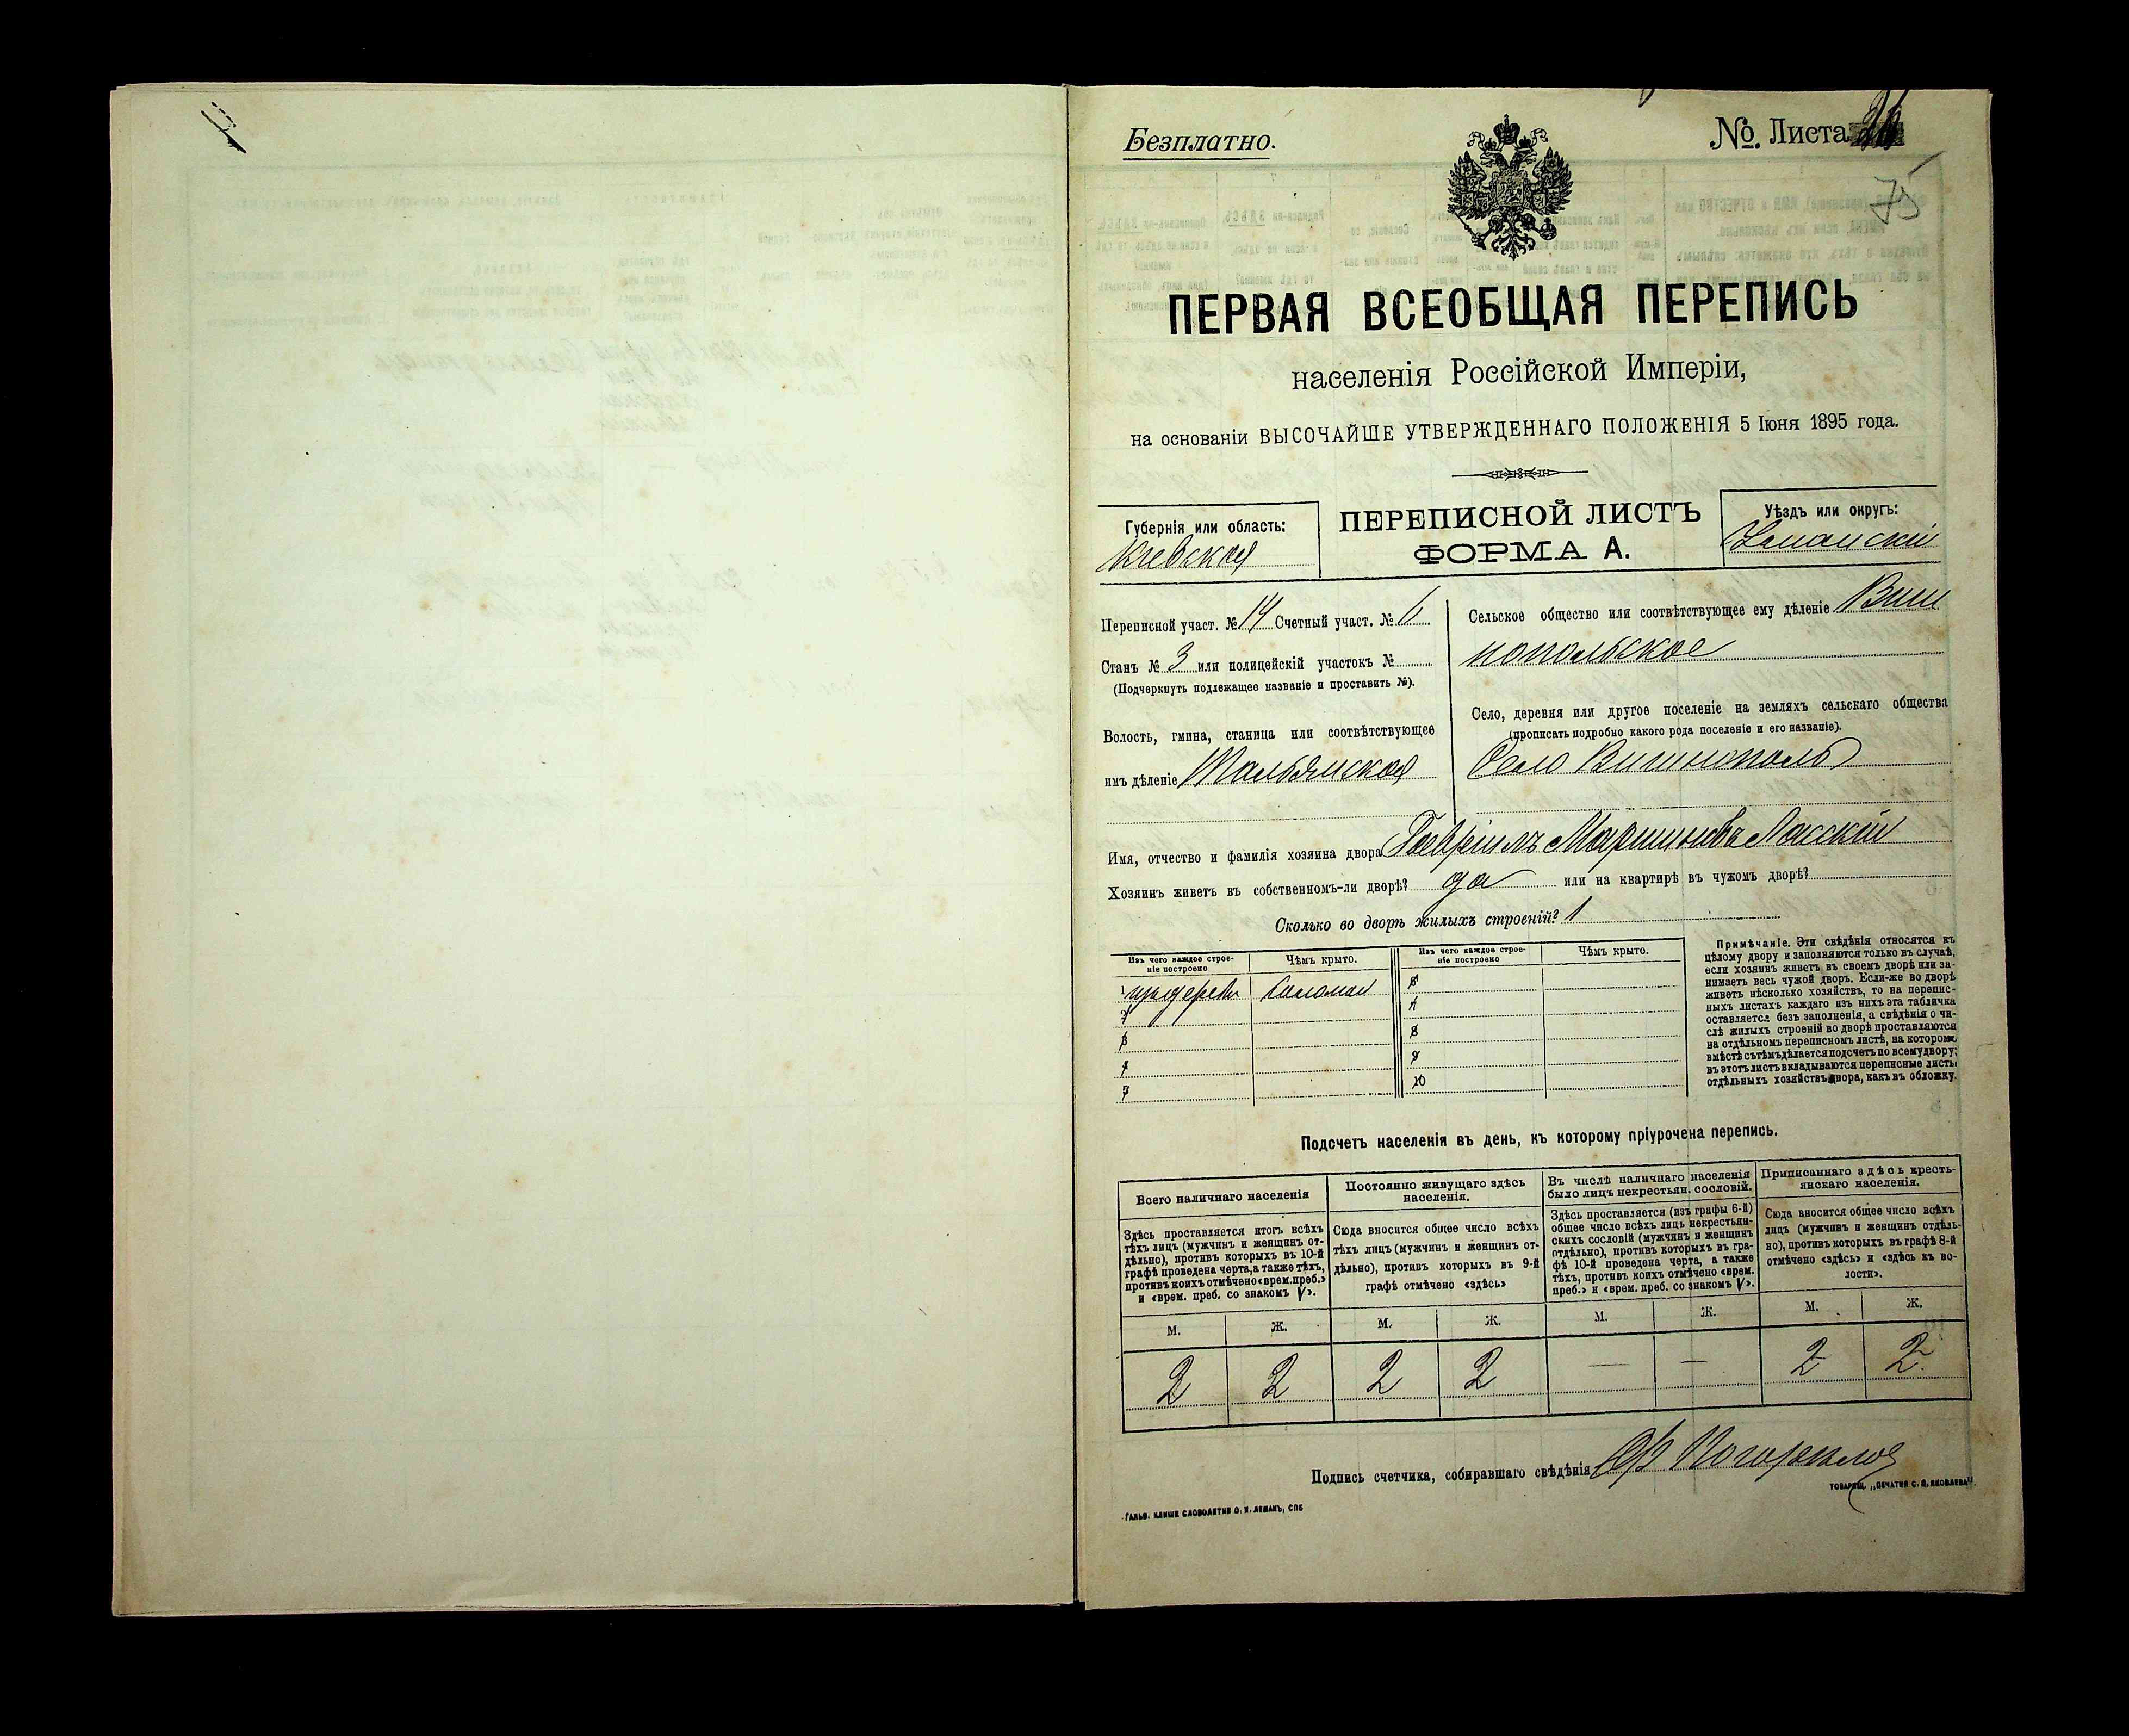 Безплатно.
№. Листа
75
ПЕРВАЯ ВСЕОБЩАЯ ПЕРЕПИСЬ
населенія Россійской Имперіи,
на основаніи ВЫСОЧАЙШЕ УТВЕРЖДЕННАГО ПОЛОЖЕНІЯ 5 Іюня 1895 года.
Губернія или область:
Кіевская
ПЕРЕПИСНОЙ ЛИСТЪ
ФОРМА А.
Уѣздъ или округъ:
Уманскій
Переписной участ. № 14 Счетный участ. № 6
Станъ № 3 или полицейскій участокъ №
(Подчеркнуть подлежащее названіе и проставить №).
Волость, гмина, станица или соотвѣтствующее
имъ дѣленіе Тальянская
Сельское общество или соотвѣтствующее ему дѣленіе Виш
нопольское
Село, деревня или другое поселеніе на земляхъ сельскаго общества
(прописать подробно какого рода поселеніе и его названіе).
Село Вишнополь
Имя, отчество и фамилія хозяина двора Гавріилъ Мартиновъ Ласскій
Хозяинъ живетъ въ собственномъ-ли дворѣ? да или на квартирѣ въ чужомъ дворѣ?
Сколько во дворѣ жилыхъ строеній? 1
Изъ чего каждое строе-
ніе построено
Чѣмъ крыто.
Изъ чего каждое строе-
ніе построено
Чѣмъ крыто.
1 изъ дерева Соломой 6
2 7
3 8
4 9
5 10
Примѣчаніе. Эти свѣдѣнія относятся къ
цѣлому двору и заполняются только въ случаѣ,
если хозяинъ живетъ въ своемъ дворѣ или за-
нимаетъ весь чужой дворъ. Если-же во дворѣ
живетъ нѣсколько хозяйствъ, то на перепис-
ныхъ листахъ каждаго изъ нихъ эта табличка
оставляется безъ заполненія, а свѣдѣнія о чи-
слѣ жилыхъ строеній во дворѣ проставляются
на отдѣльномъ переписномъ листѣ, на которомъ
вмѣстѣ съ тѣмъ дѣлается подсчетъ по всему двору;
въ этотъ листъ вкладываются переписные листы
отдѣльныхъ хозяйствъ двора, какъ въ обложку.
Подсчетъ населенія въ день, къ которому пріурочена перепись.
Всего наличнаго населенія
Здѣсь проставляется итогъ всѣхъ
тѣхъ лицъ (мужчинъ и женщинъ от-
дѣльно), противъ которыхъ въ 10-й
графѣ проведена черта, а также тѣхъ,
противъ коихъ отмѣчено «врем. преб.»
и «врем. преб. со знакомъ V».
Постоянно живущаго здѣсь
населенія.
Сюда вносится общее число всѣхъ
тѣхъ лицъ (мужчинъ и женщинъ от-
дѣльно), противъ которыхъ въ 9-й
графѣ отмѣчено «здѣсь»
Въ числѣ наличнаго населенія
было лицъ некрестьян. сословій.
Здѣсь проставляется (изъ графы 6-й)
общее число всѣхъ лицъ некрестьян-
скихъ сословій (мужчинъ и женщинъ
отдѣльно), противъ которыхъ въ гра-
фѣ 10-й проведена черта, а также
тѣхъ, противъ коихъ отмѣчено «врем.
преб.» и «врем. преб. со знакомъ V».
Приписаннаго здѣсь кресть-
янскаго населенія.
Сюда вносится общее число всѣхъ
лицъ (мужчинъ и женщинъ отдѣль-
но), противъ которыхъ въ графѣ 8-й
отмѣчено «здѣсь» и «здѣсь къ во-
лости».
М. Ж. М. Ж. М. Ж. М. Ж.
2 2 2 2 — — 2 2
Подпись счетчика, собиравшаго свѣдѣнія
ТОВАРИЩ. „ПЕЧАТНЯ С. П. ЯКОВЛЕВА".
ГАЛЬВ. КЛИШЕ СЛОВОЛИТНИ О. И. ЛЕМАНЪ, СПБ